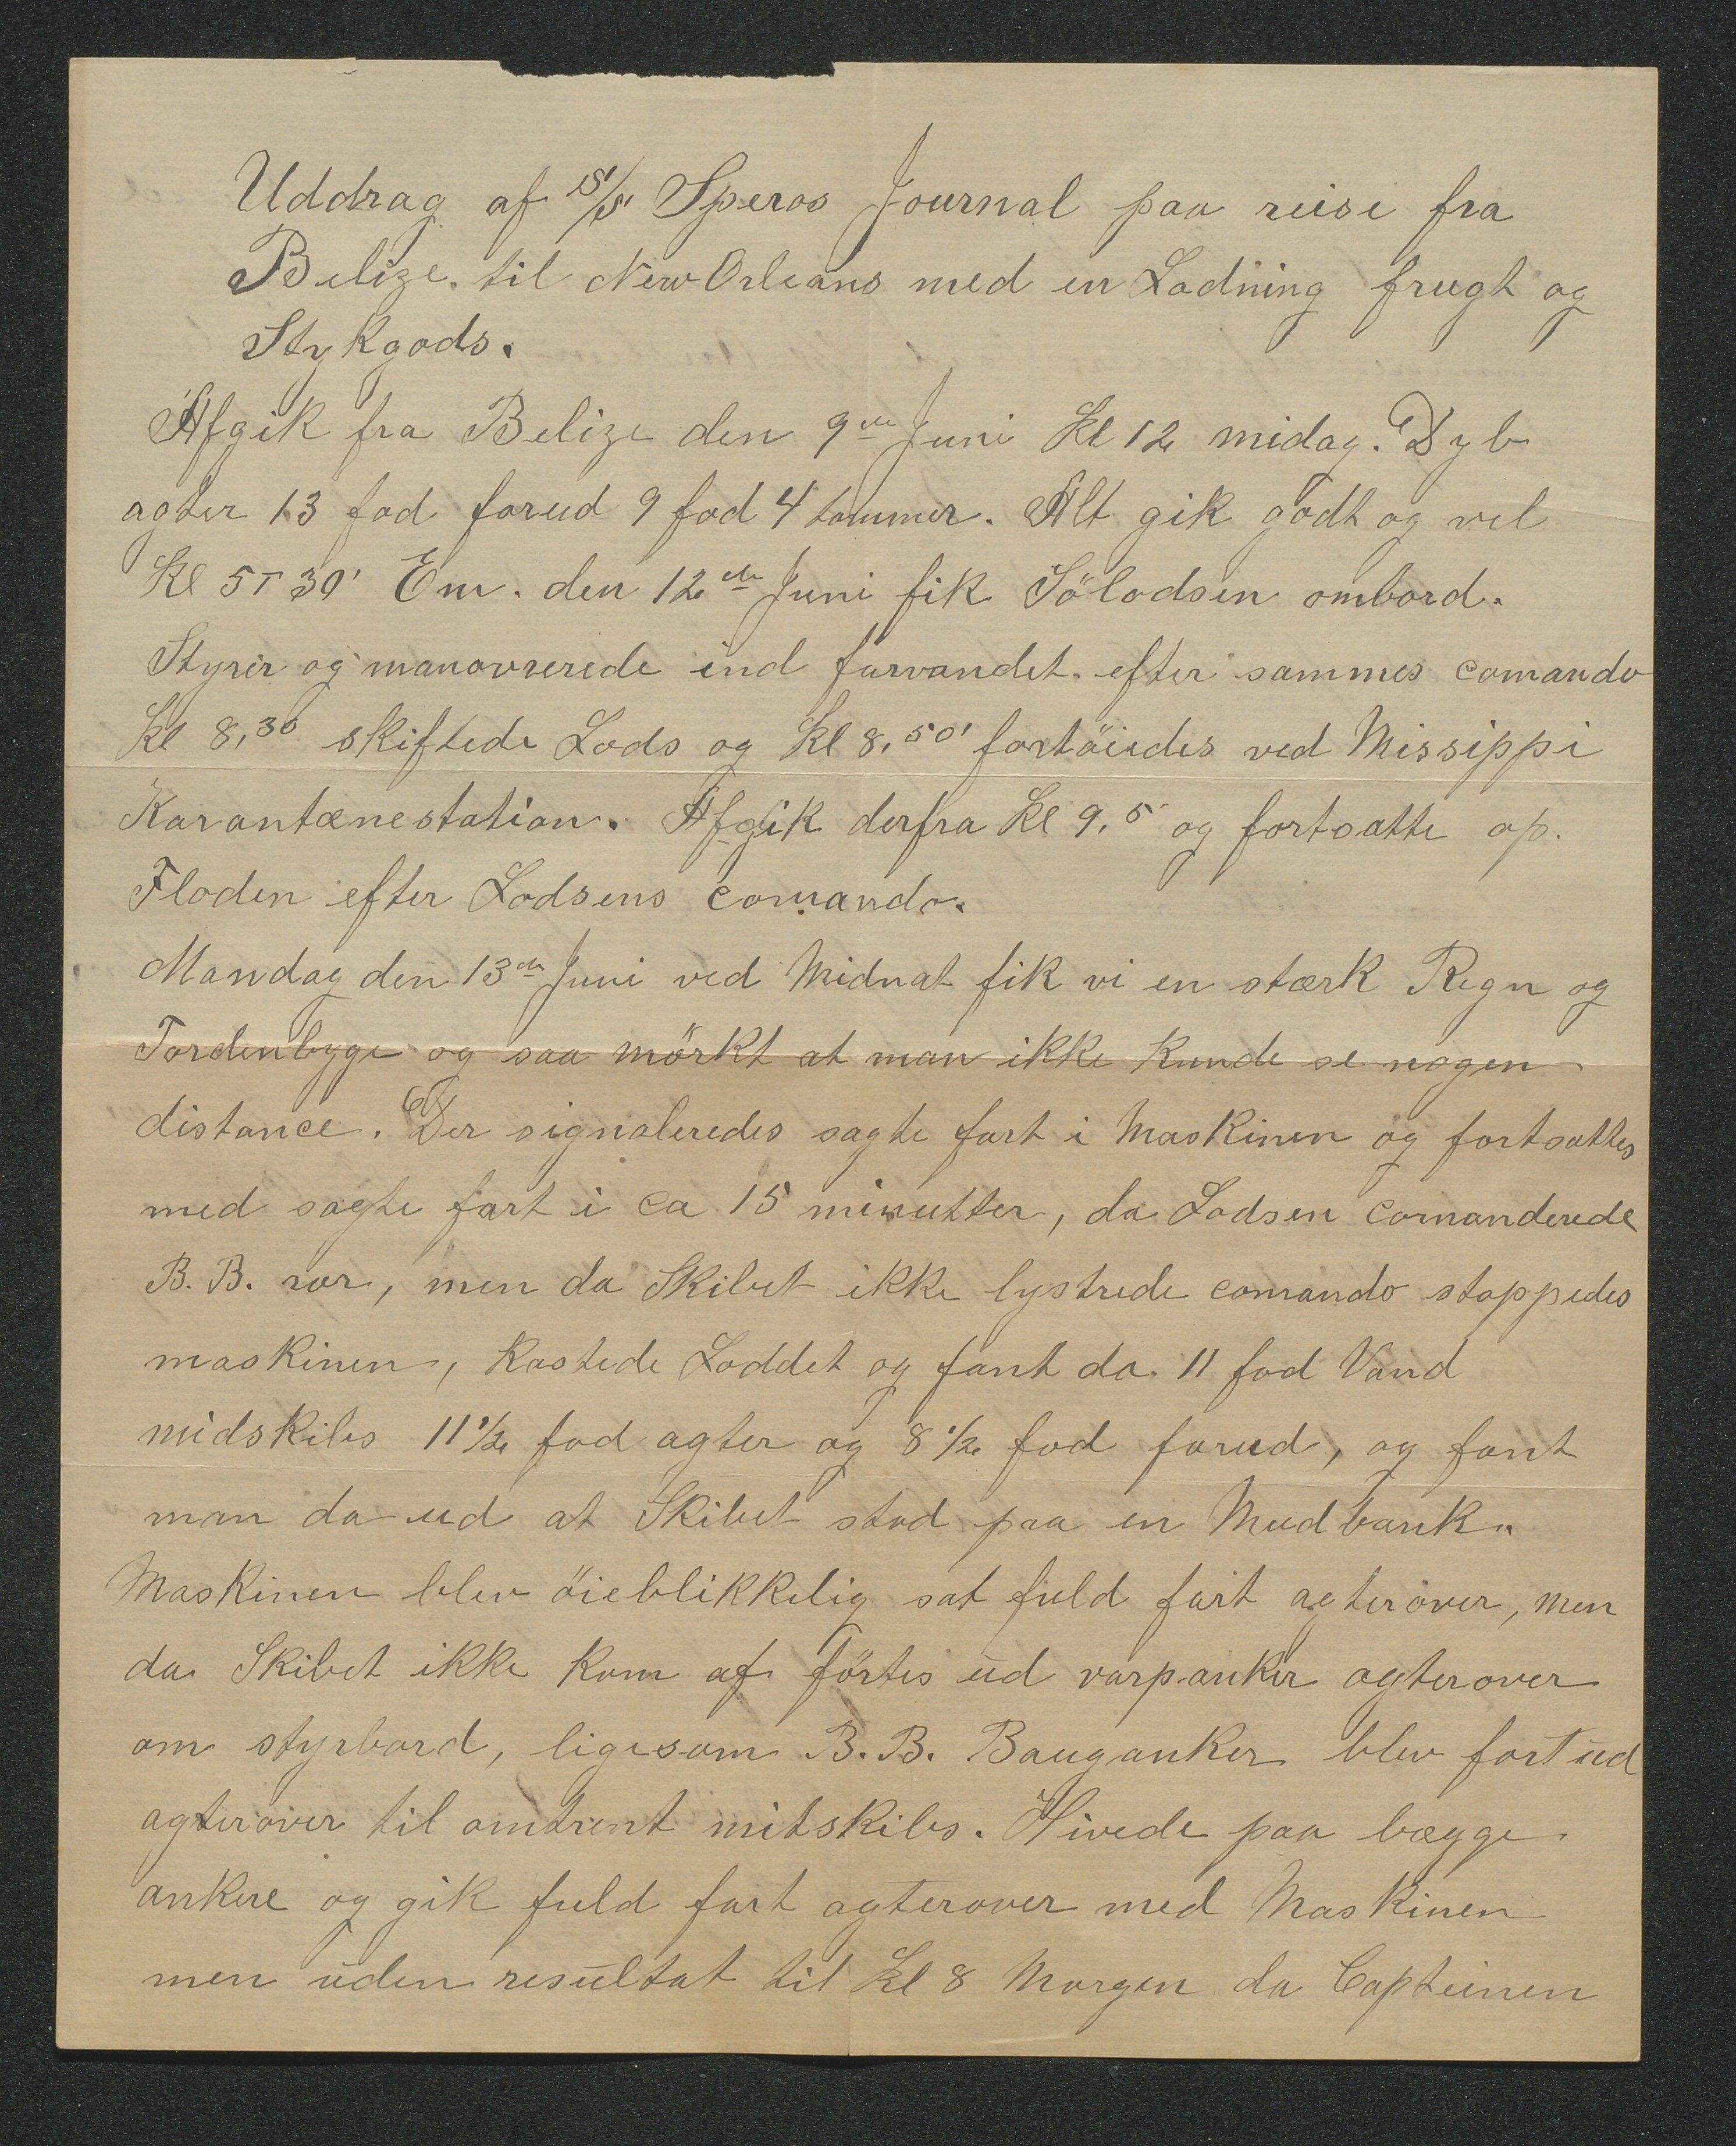 Uddrag af S/S Speros Journal paa reise fra
Belize til New Orleans med en Ladning frugt og
Stykgods.
Afgik fra Belize den 9de Juni Kl 12 midag. Dyb
agter 13 fod forud 9 fod 4 tommer. Alt gik godt og vel
Kl 5T 30' Em. den 12te Juni fik Sölodsen ombord.
Styrer og manovrerede ind farvandet efter sammes comando
Kl 8,30 skiftede Lods og Kl 8,50' fortöiedes ved Missippi
Karantænestation. Afgik derfra Kl 9,5 og fortsatte op.
Floden efter Lodsens comando.
Mandag den 13de Juni ved Midnat fik vi en stærk Regn og
Tordenbyge og saa mörkt at man ikke Kunde se nogen
distance. Der signaleredes sagte fart i Maskinen og fortsattes
med sagte fart i ca 15 minutter, da Lodsen comanderede
B. B. ror, men da Skibet ikke lystrede comando stoppedes
maskinen, Kastede Loddet og fant da 11 fod Vand
midskibs 11 1/2 fod agter og 8 1/2 fod forud, og fant
man da ud at Skibet stod paa en Mudbank.
Maskinen blev öieblikkelig sat fuld fart agterover, men
da Skibet ikke Kom af förtes ud varpanker agterover
om styrbord, ligesom B. B. Bauganker blev fort ud
agterover til omtrent mitskibs. Hivede paa begge
ankere og gik fuld fart agterover med Maskinen
men uden resultat til Kl 8 Morgen da Capteinen